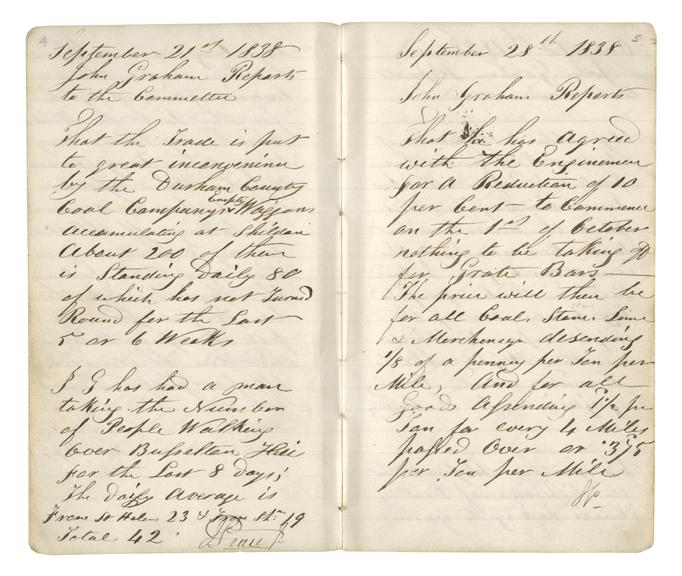 4
September 21st 1838
John Graham Reports
to the Committee
That the Trade is put
to great inconvenince
by the Durham County
Coal Companys Empty Waggons
accumulating at Shildon
About 200 of them
is Standing Daily 80
of which has not Turned
Round for the Last
5 or 6 Weeks
J G has had a man
taking the Number
of People Walking
Over Busselton Hill
for the Last 8 Days;
The daily Average is
From St Helens 23 & From Sn 19
Total 42
5
September 28th 1838
John Graham Reports
That he has agreed
with the Enginemen
for A Reduction of 10
per Cent to Commence
on the 1st of October
nothing to be taking off
for Grate Bars
The price will then be
for all Coal, Stone, Lime
& Merchenize desending
1/8 of a penney per Ton per
Mile, And for all
Goods Assending 1½ per
Ton for every 4 Miles
passed Over or .375
per Ton per Mile